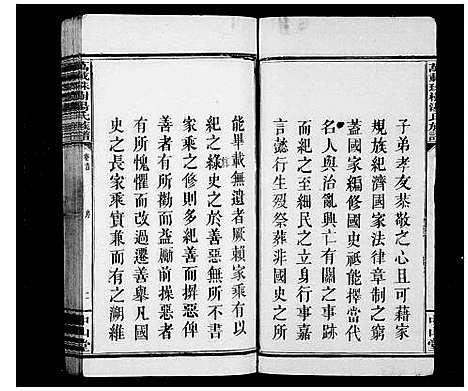 子弟孝友恭敬之心且可藉家
規族紀濟國家法律章制之窮
蓋國家編修國史祇能擇當代
名人與治亂興亡有關之事跡
而紀之至細民之立身行事嘉
言懿行生烈祭葬非國史之所
能畢載無遺者厥賴家乘有以
紀之緣史之於善惡無所不書
家乘之修則多紀善而摒惡俾
善者有所勸而益勵前操惡者
有所愧懼而改過遷善舉凡國
史之長家乘實兼而有之溯維
萬載珠樹湯氏族譜
卷首
序
二
中山堂